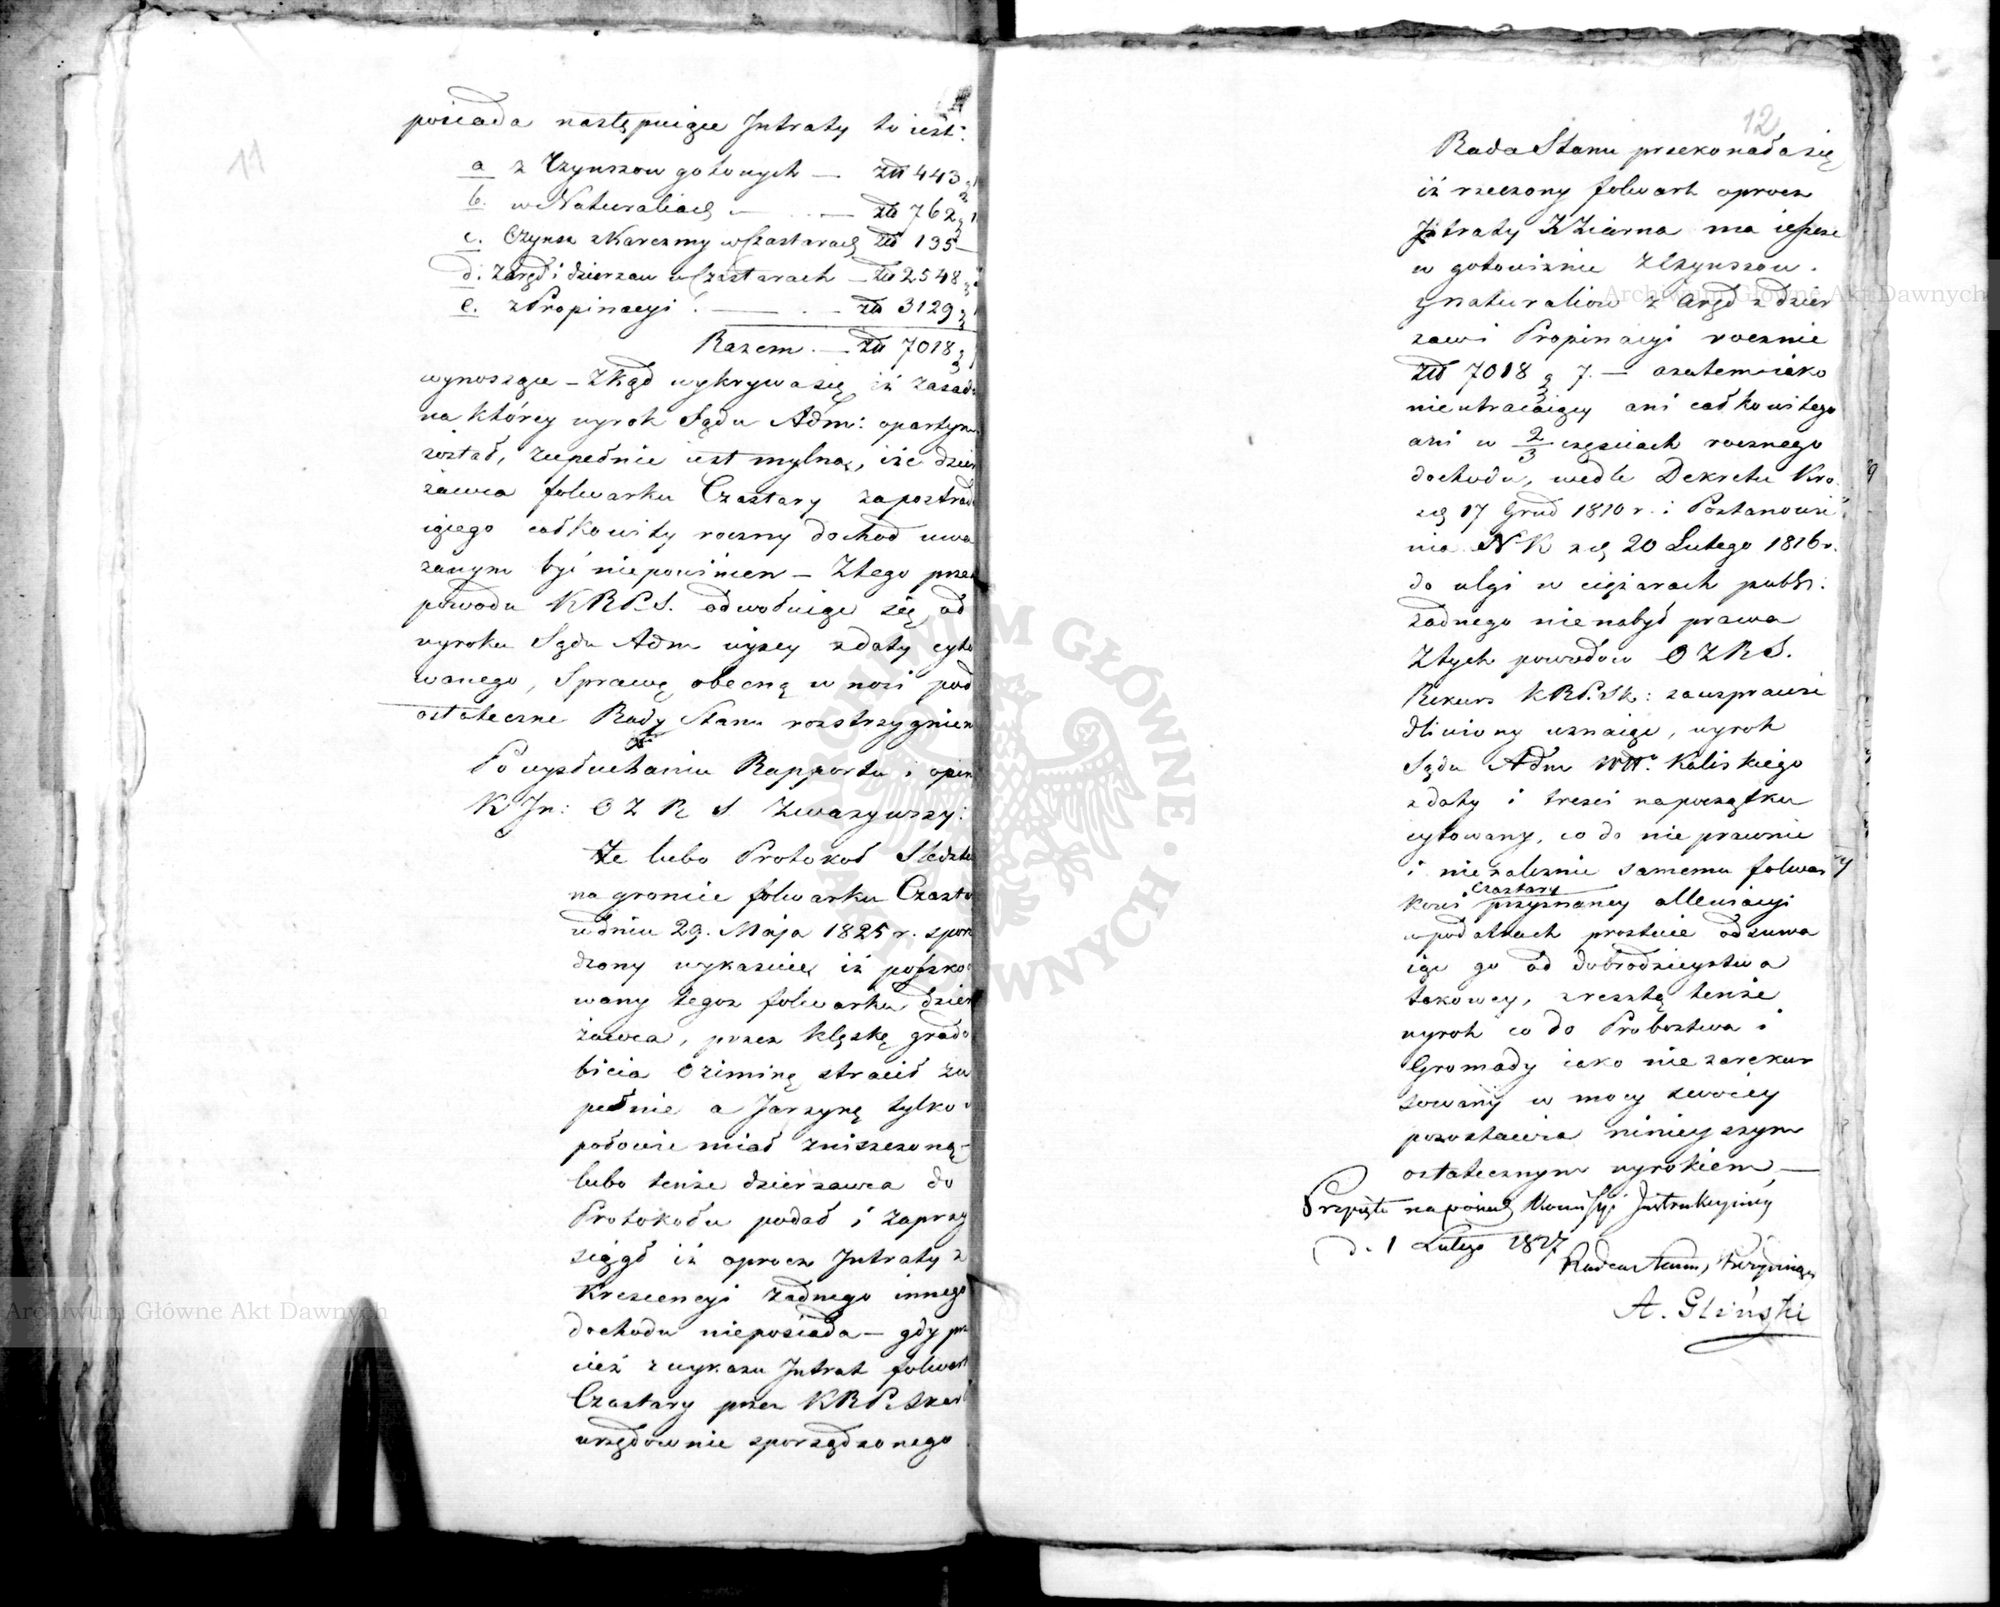 11
posiada następuiące Intraty to iest:
a z Czynszow gotowych — zł 443
b. w Naturaliach — — zł 762
c. Czynsz z Karczmy w Czastarach zł 135 —
d. zarząd i dzierzaw w Czastarach — zł 2548
e. z Propinacyi — — zł 3129
Razem — zł 7018
wynoszące — Zkąd wykrywa się, iż zasada
na którey wyrok Sądu Adm: opartym
został, zupełnie iest mylną, iże dzier
żawca folwarku Czastary za postrada
iącego całkowity roczny dochod uwa
zanym być niepowinien — Ztego prze
powodu KRPS. odwołuiąc się od
wyroku Sądu Adm wyżey zdaty cyto
wanego, Sprawę obecną wnosi pod
ostateczne Rady Stanu rozstrzygnien
Po wysłuchaniu Rapportu i opin
K Jn: O Z R S Zważywszy:
Że lubo Protokoł Sledztw
na gruncie folwarku Czasta
w dniu 29. Maja 1825 r. sporz
dzony wykazuie iż poszko
wany tegoz folwarku dzier
żawca, przez klęskę grado
bicia Oziminę stracił zu
pełnie a Jarzynę tylko w
połowie miał zniszczoną —
lubo tenże dzierzawca do
Protokołu podał i zaprzy
siągł iż oprocz Intraty z
Krescencyi żadnego innego
dochodu nieposiada — gdy prze
cież z wykazu Intrat folwark
Czastary przez KRPiSkar
urzędownie sporządzonego
12
Rada Stanu przekonała się
iż rzeczony folwark oprocz
Intraty z Ziarna ma ieszcze
w gotowiznie z Czynszow.
z naturaliow z aręd z dzier
zaw i Propinacyi rocznie
zł 7018 7. — azatem iako
nieutracaiący ani całkowitego
ani w 2/3 częściach rocznego
dochodu, wedle Dekretu Kro.
z dę 17 Grud 1810 r. i Postanowie
nia NK z dę 20 Lutego 1816 r.
do ulgi w ciężarach publ:
żadnego nie nabył prawa
Ztych powodow O Z R S.
Rekurs KRPiSk: za usprawie
dliwiony uznaiąc, wyrok
Sądu Adm Wtt. Kaliskiego
z daty i tresci napoczątku
cytowany, co do nieprawnie
i nienależnie samemu folwar
Czastary
kowi przyznaney allewiacyi
w podatkach prostuie odsuwa
iąc go od dobrodzieystwa
takowey, zresztą tenże
wyrok co do Probostwa i
Gromady iako nie zarekur
sowany w mocy swoiey
pozostawia ninieyszym
ostatecznym wyrokiem —
Przyięto na posiedz Kommissyi Instrukcyiney
d. 1 Lutego 1827
Radca Stanu,
A. Gliński
Archiwum Główne Akt Dawnych
Archiwum Główne Akt Dawnych
ARCHIWUM GŁÓWNE AKT DAWNYCH